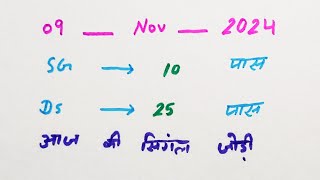 09 __ Nov __ 2024
SG → 10 पास
DS → 25 पास
आज की सिगंल जोड़ी